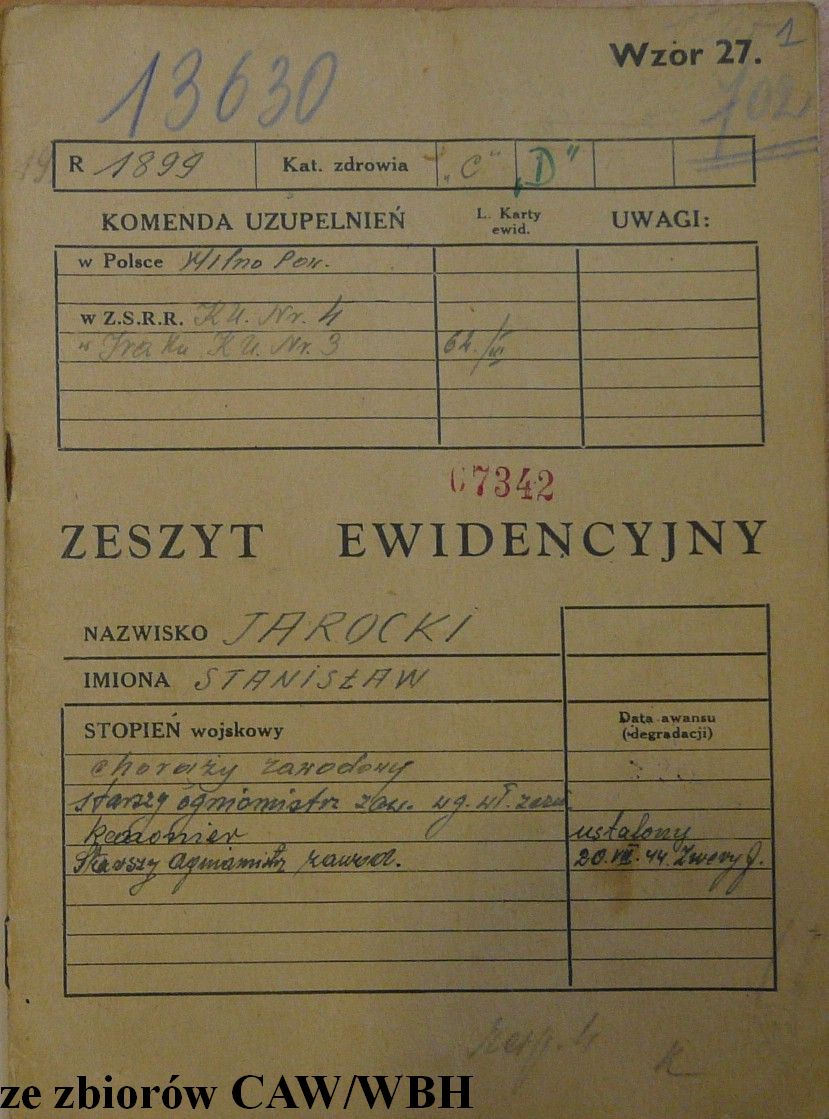 Wzór 27. 1
13630
R 1899 Kat. zdrowia "C" "D"
KOMENDA UZUPEŁNIEŃ L. Karty ewid. UWAGI:
w Polsce Wilno Pow.
w Z.S.R.R. K.U. Nr. 4
w Iraku K.U. Nr. 3 62/
67342
ZESZYT EWIDENCYJNY
NAZWISKO JAROCKI
IMIONA STANISŁAW
STOPIEŃ wojskowy Data awansu (degradacji)
chorąży zawodowy
starszy ogniomistrz zaw. wg. wł. zezn.
kanonier ustalony
Starszy ogniomistrz zawod. 20.VIII.44.
ze zbiorów CAW/WBH